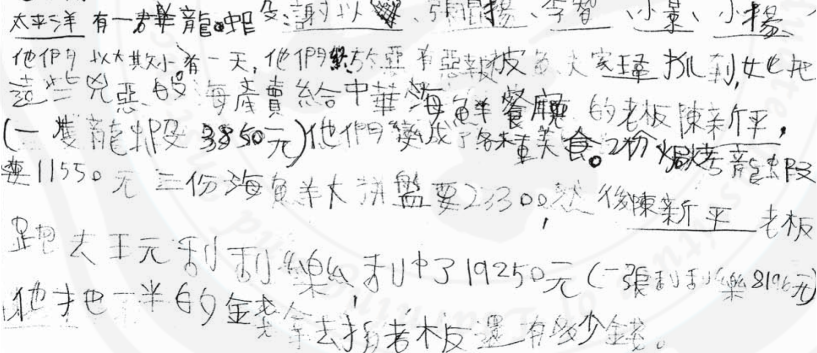 太平洋有一群龍蝦:謝以、張開揚、李智、小景、小揚、
他們以大欺小。有一天,他們終於惡有惡報被魚夫家 抓到,她把
這些兇惡的海產賣給中華海鮮餐廳的老板陳新平,
(一隻龍蝦 3850元)他們變成了各種美食。2份焗烤龍蝦
要11550元 三份海鮮大拼盤要23300,然後陳新平老板
把 去 元刮刮樂,刮中了19250元(一張刮刮樂 819 元)
他把一半的金 拿去捐老板還有多少錢。